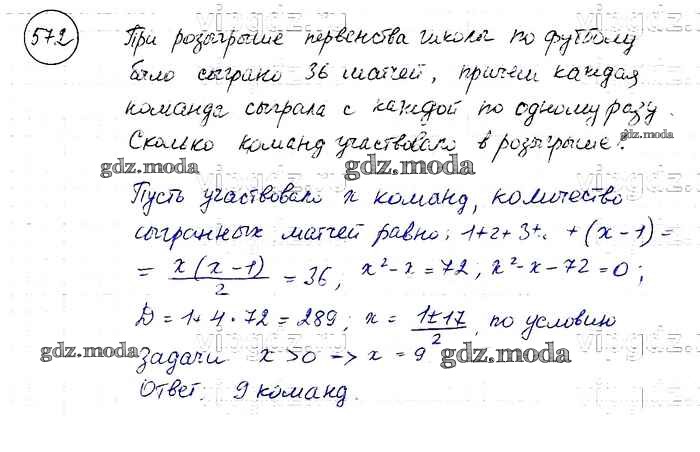 572
При розыгрыше первенства школы по футболу
было сыграно 36 матчей, причем каждая
команда сыграла с каждой по одному разу.
Сколько команд участвовало в розыгрыше?
Пусть участвовало x команд, количество
сыгранных матчей равно: 1+2+3+.. +(x-1)=
= x(x-1)/2 = 36; x²-x=72; x²-x-72=0;
D=1+4·72=289; x = 1±17/2, по условию
задачи x>0 -> x=9
Ответ. 9 команд.
gdz.moda
gdz.moda
gdz.moda
gdz.moda
gdz.moda